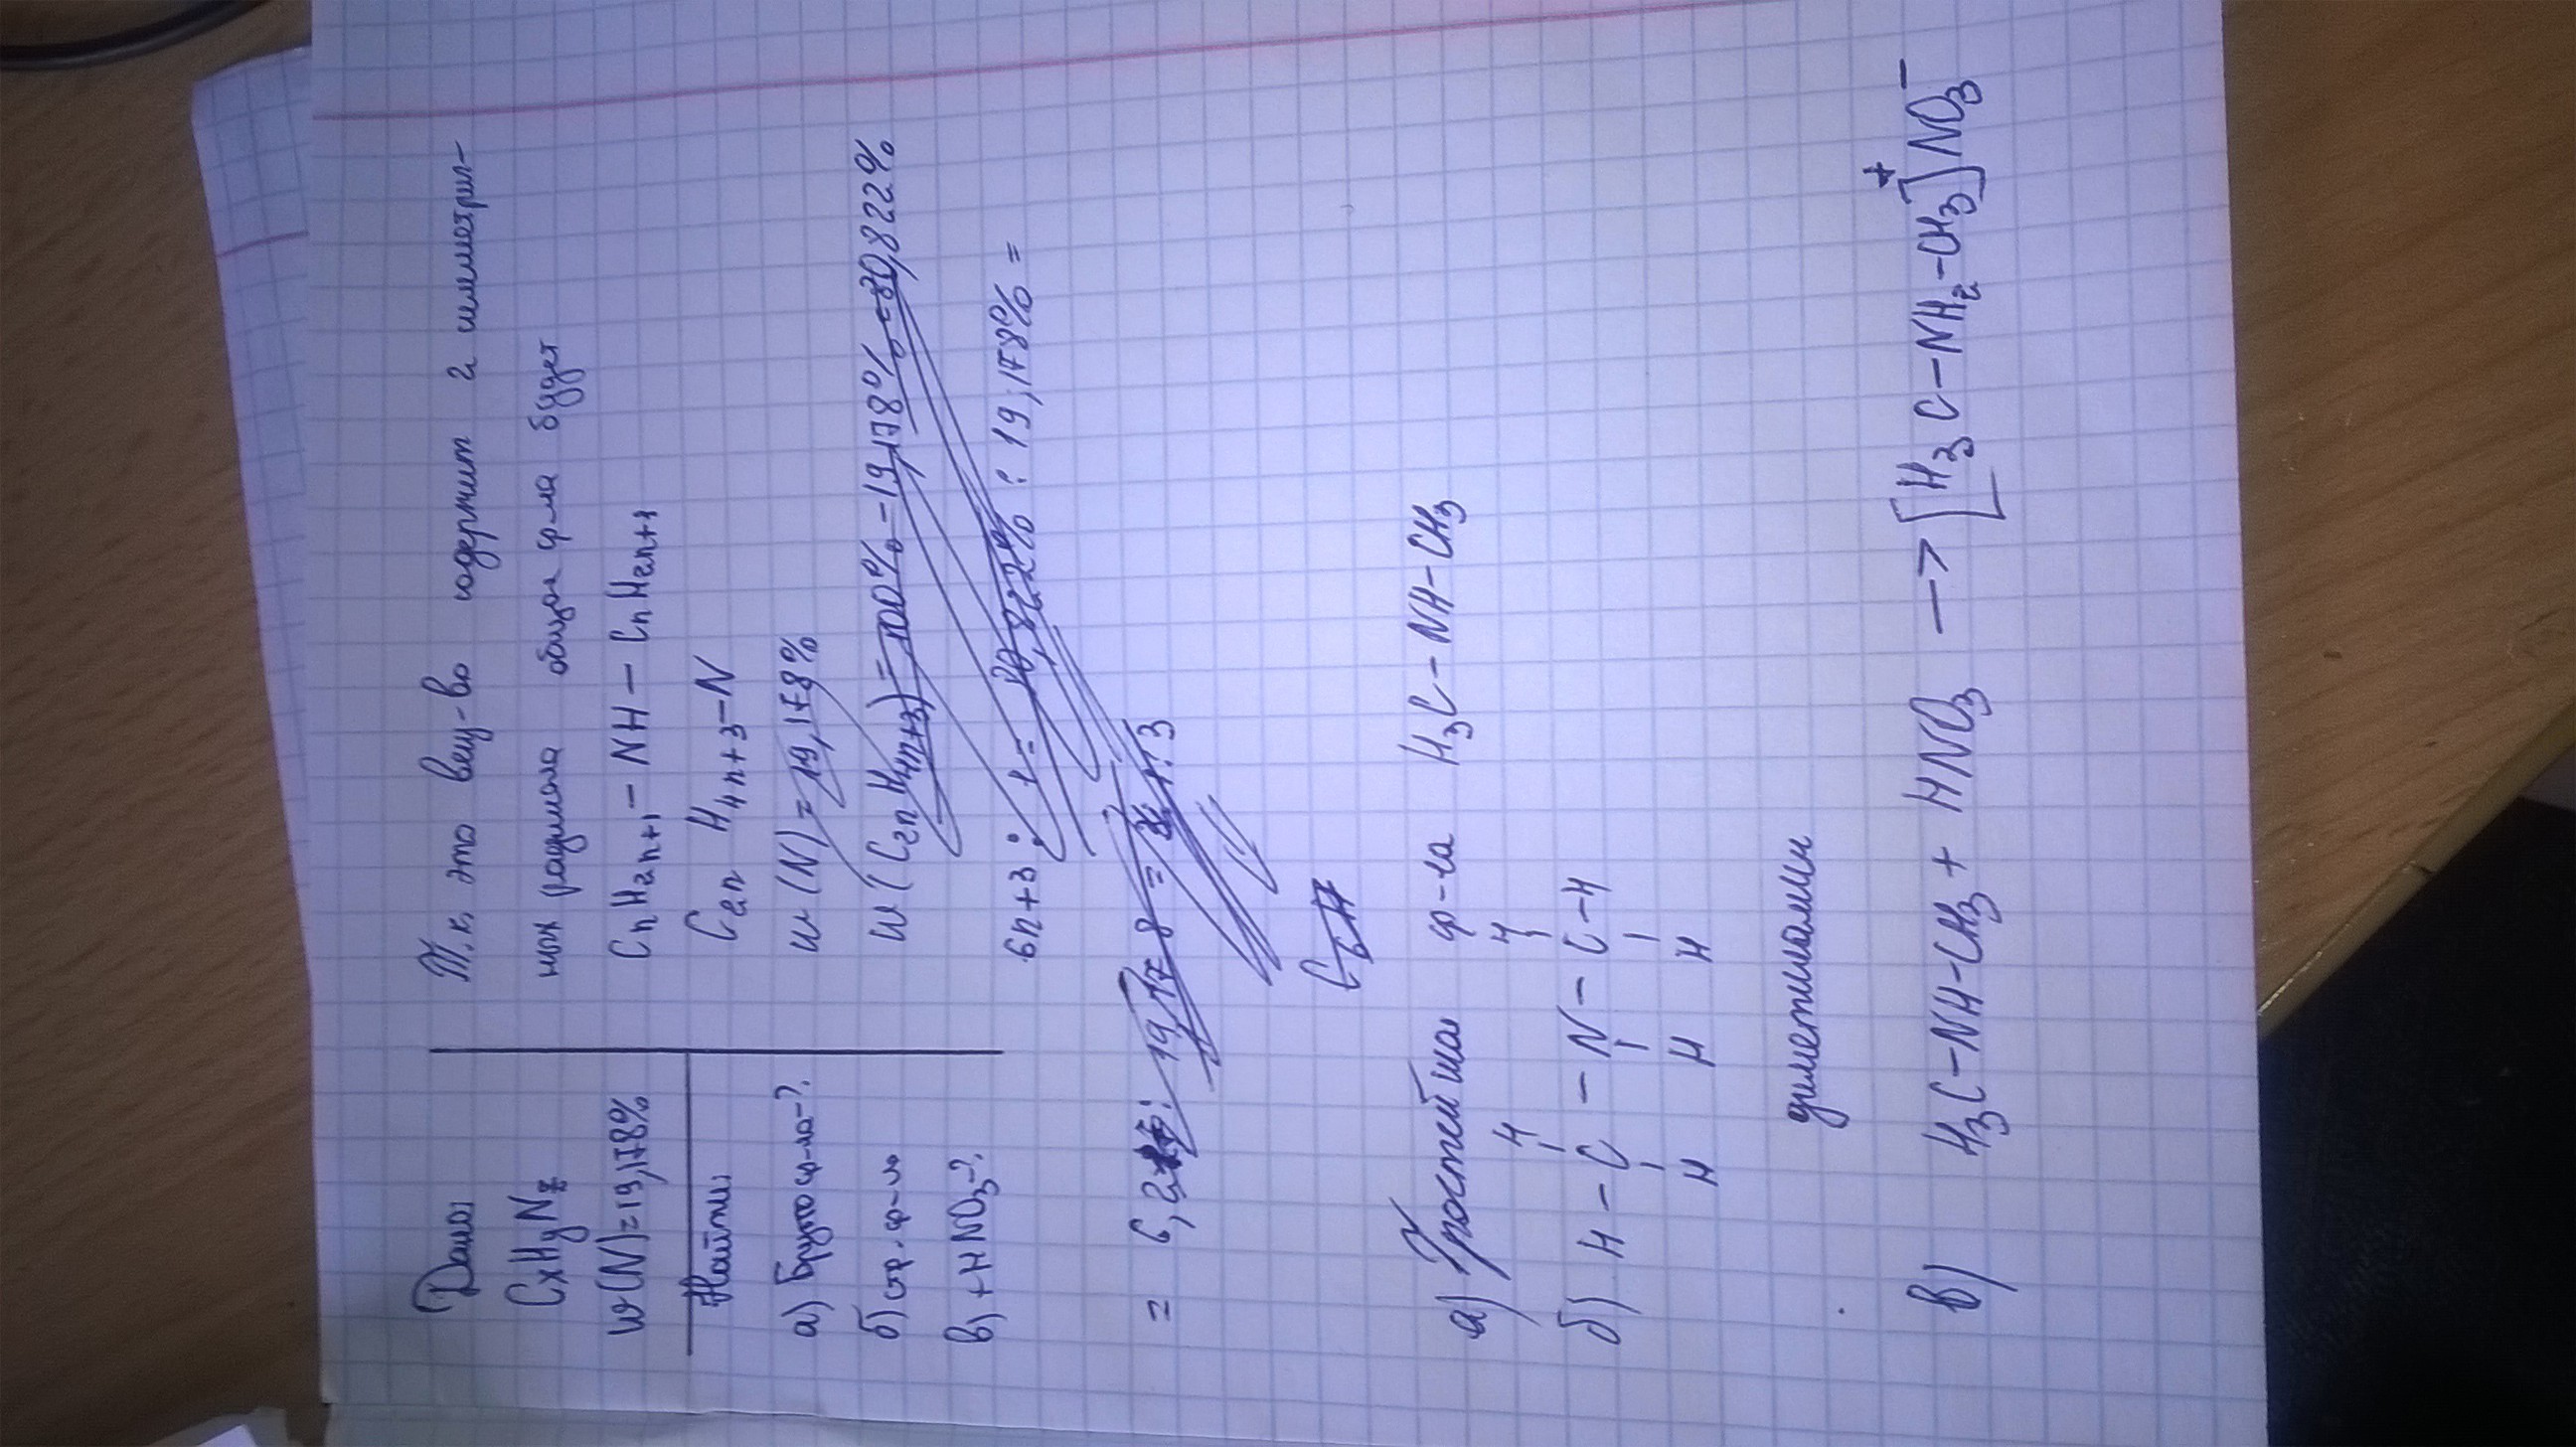 Дано:
CxHyNz
w(N)=19,178%
Найти:
а) Брутто ф-ла-?
б) стр. ф-ла
в) + HNO3-?
Т.к. это вещ-во содержит 2 симметрич-
ных радикала общая ф-ла будет
CnH2n+1 – NH – CnH2n+1
C2n H4n+3–N
w(N) = 19,178%
w(C2nH4n+3) = 100% – 19,178% = 80,822%
6n+3 : 1 = 80,822% : 19,178% =
= 6,2 : 19,178 =
C6H
а) Простейшая ф-ла H3C – NH – CH3
H H
б) H – C – N – C – H
H H H
диметиламин
в) H3C – NH – CH3 + HNO3 → [H3C – NH2 – CH3]+ NO3–